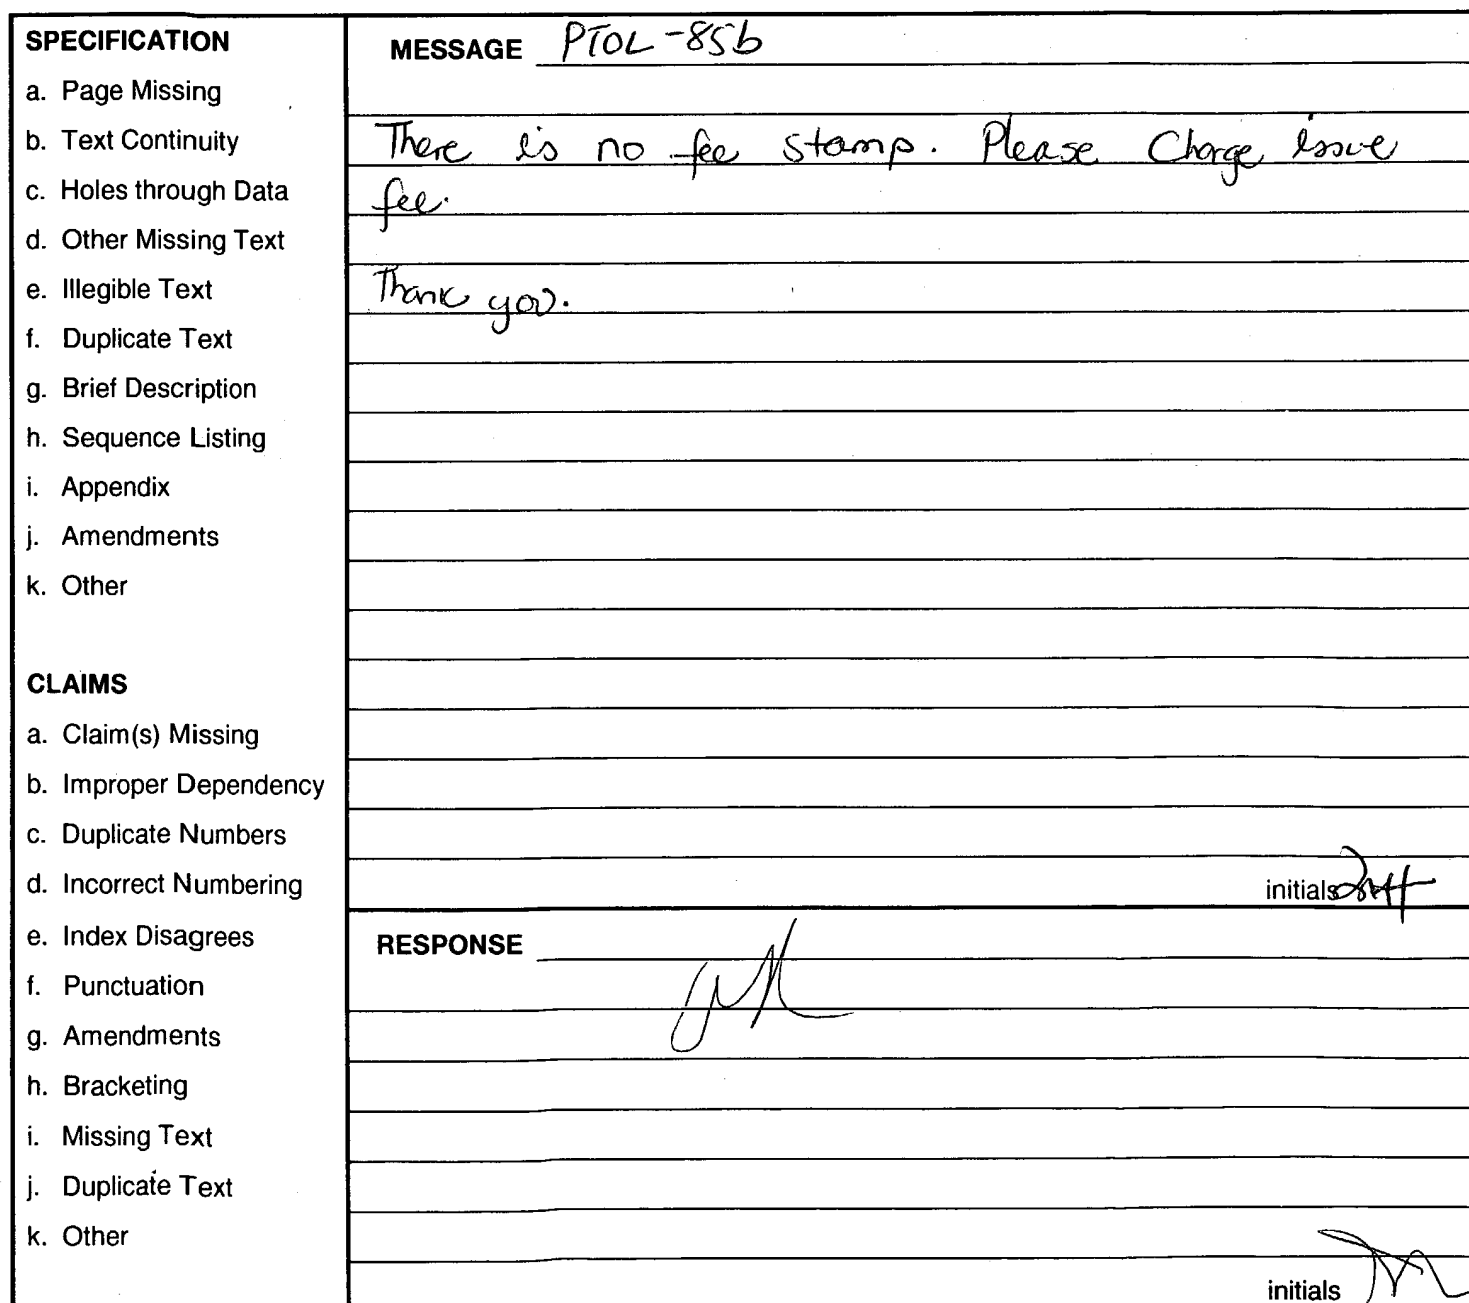 SPECIFICATION
a. Page Missing
b. Text Continuity
c. Holes through Data
d. Other Missing Text
e. Illegible Text
f. Duplicate Text
g. Brief Description
h. Sequence Listing
i. Appendix
j. Amendments
k. Other
CLAIMS
a. Claim(s) Missing
b. Improper Dependency
c. Duplicate Numbers
d. Incorrect Numbering
e. Index Disagrees
f. Punctuation
g. Amendments
h. Bracketing
i. Missing Text
j. Duplicate Text
k. Other
MESSAGE PTOL-85b
There is no fee stamp. Please Charge issue
fee.
Thank you.
initials
RESPONSE
initials